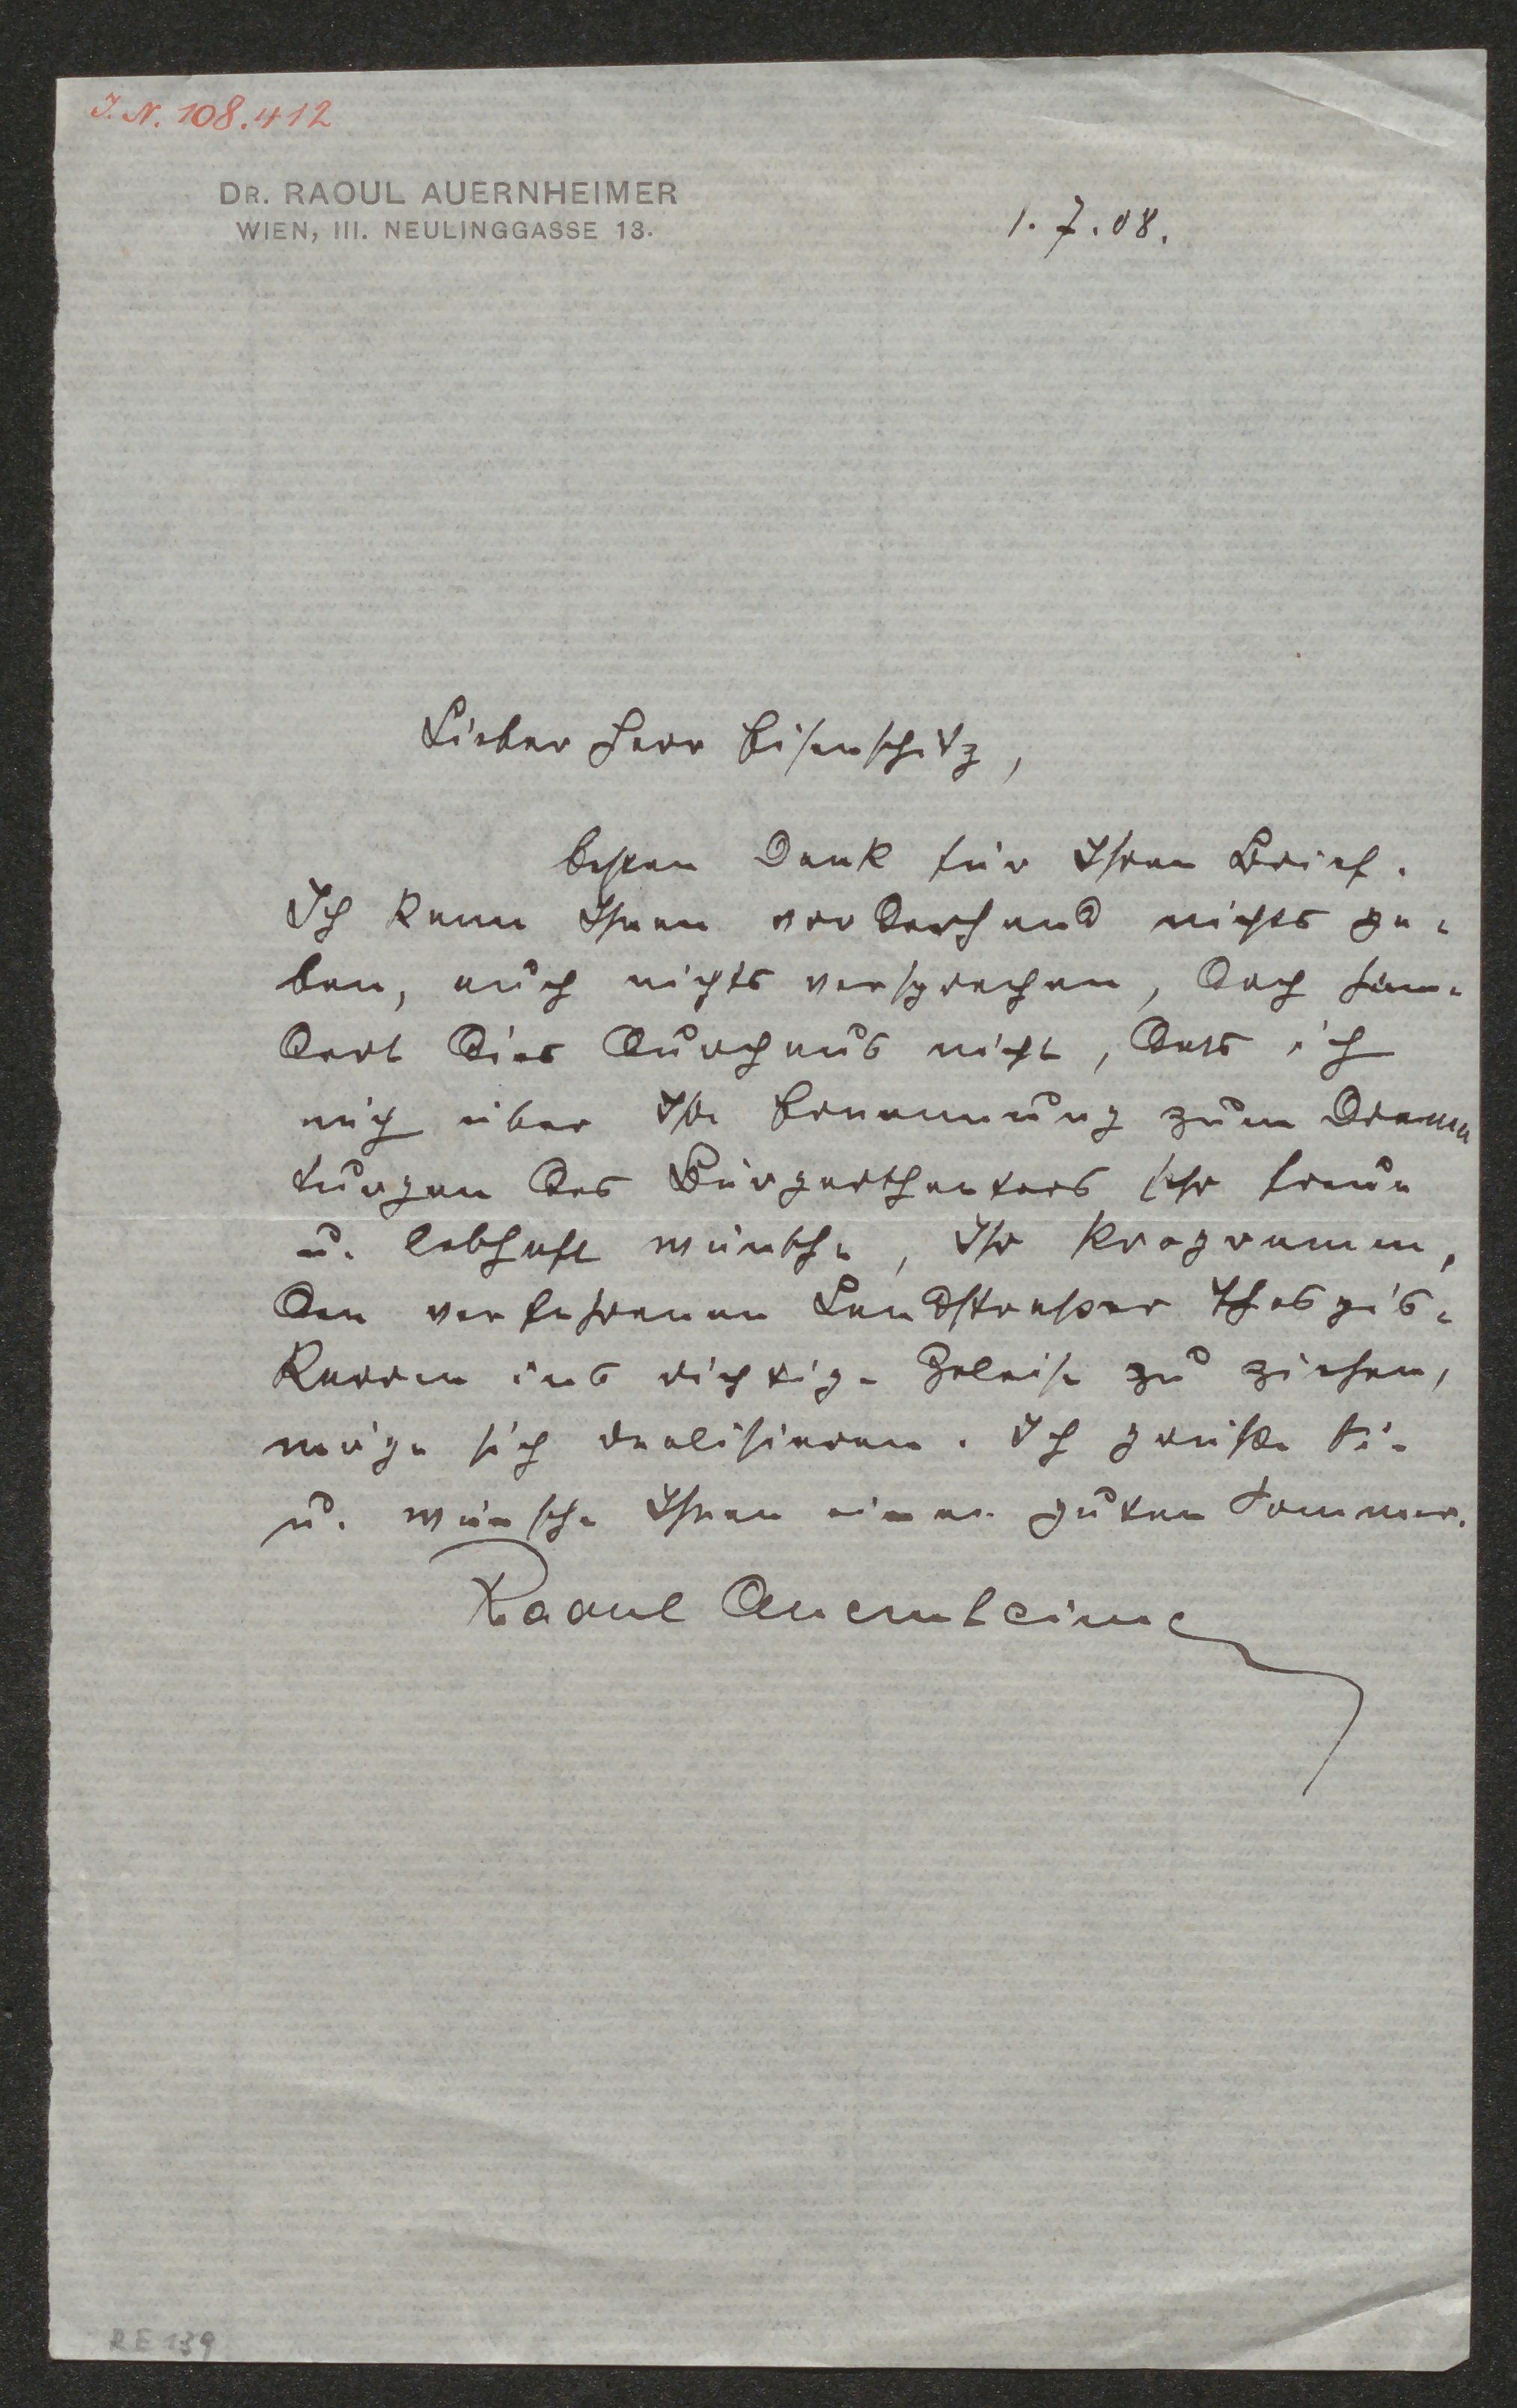 I. N. 108.412
DR. RAOUL AUERNHEIMER
WIEN, III. NEULINGGASSE 13.
1. 7. 08.
Lieber Herr Eisenschitz,
besten Dank für Ihren Brief.
Ich kann Ihnen vorderhand nichts ge-
ben, auch nichts versprechen, doch hin-
dert dies durchaus nicht, dass ich
mich über Ihre Ernennung zum Drama
turgen des Bürgertheaters sehr freue
u. lebhaft wünsche, Ihr Programm,
den verfahrenen Landstraßer Thespis-
Karren ins richtige Geleise zu ziehen,
möge sich realisieren. Ich grüße Sie
u. wünsche Ihnen einen guten Sommer.
Raoul Auernheimer
RE 139